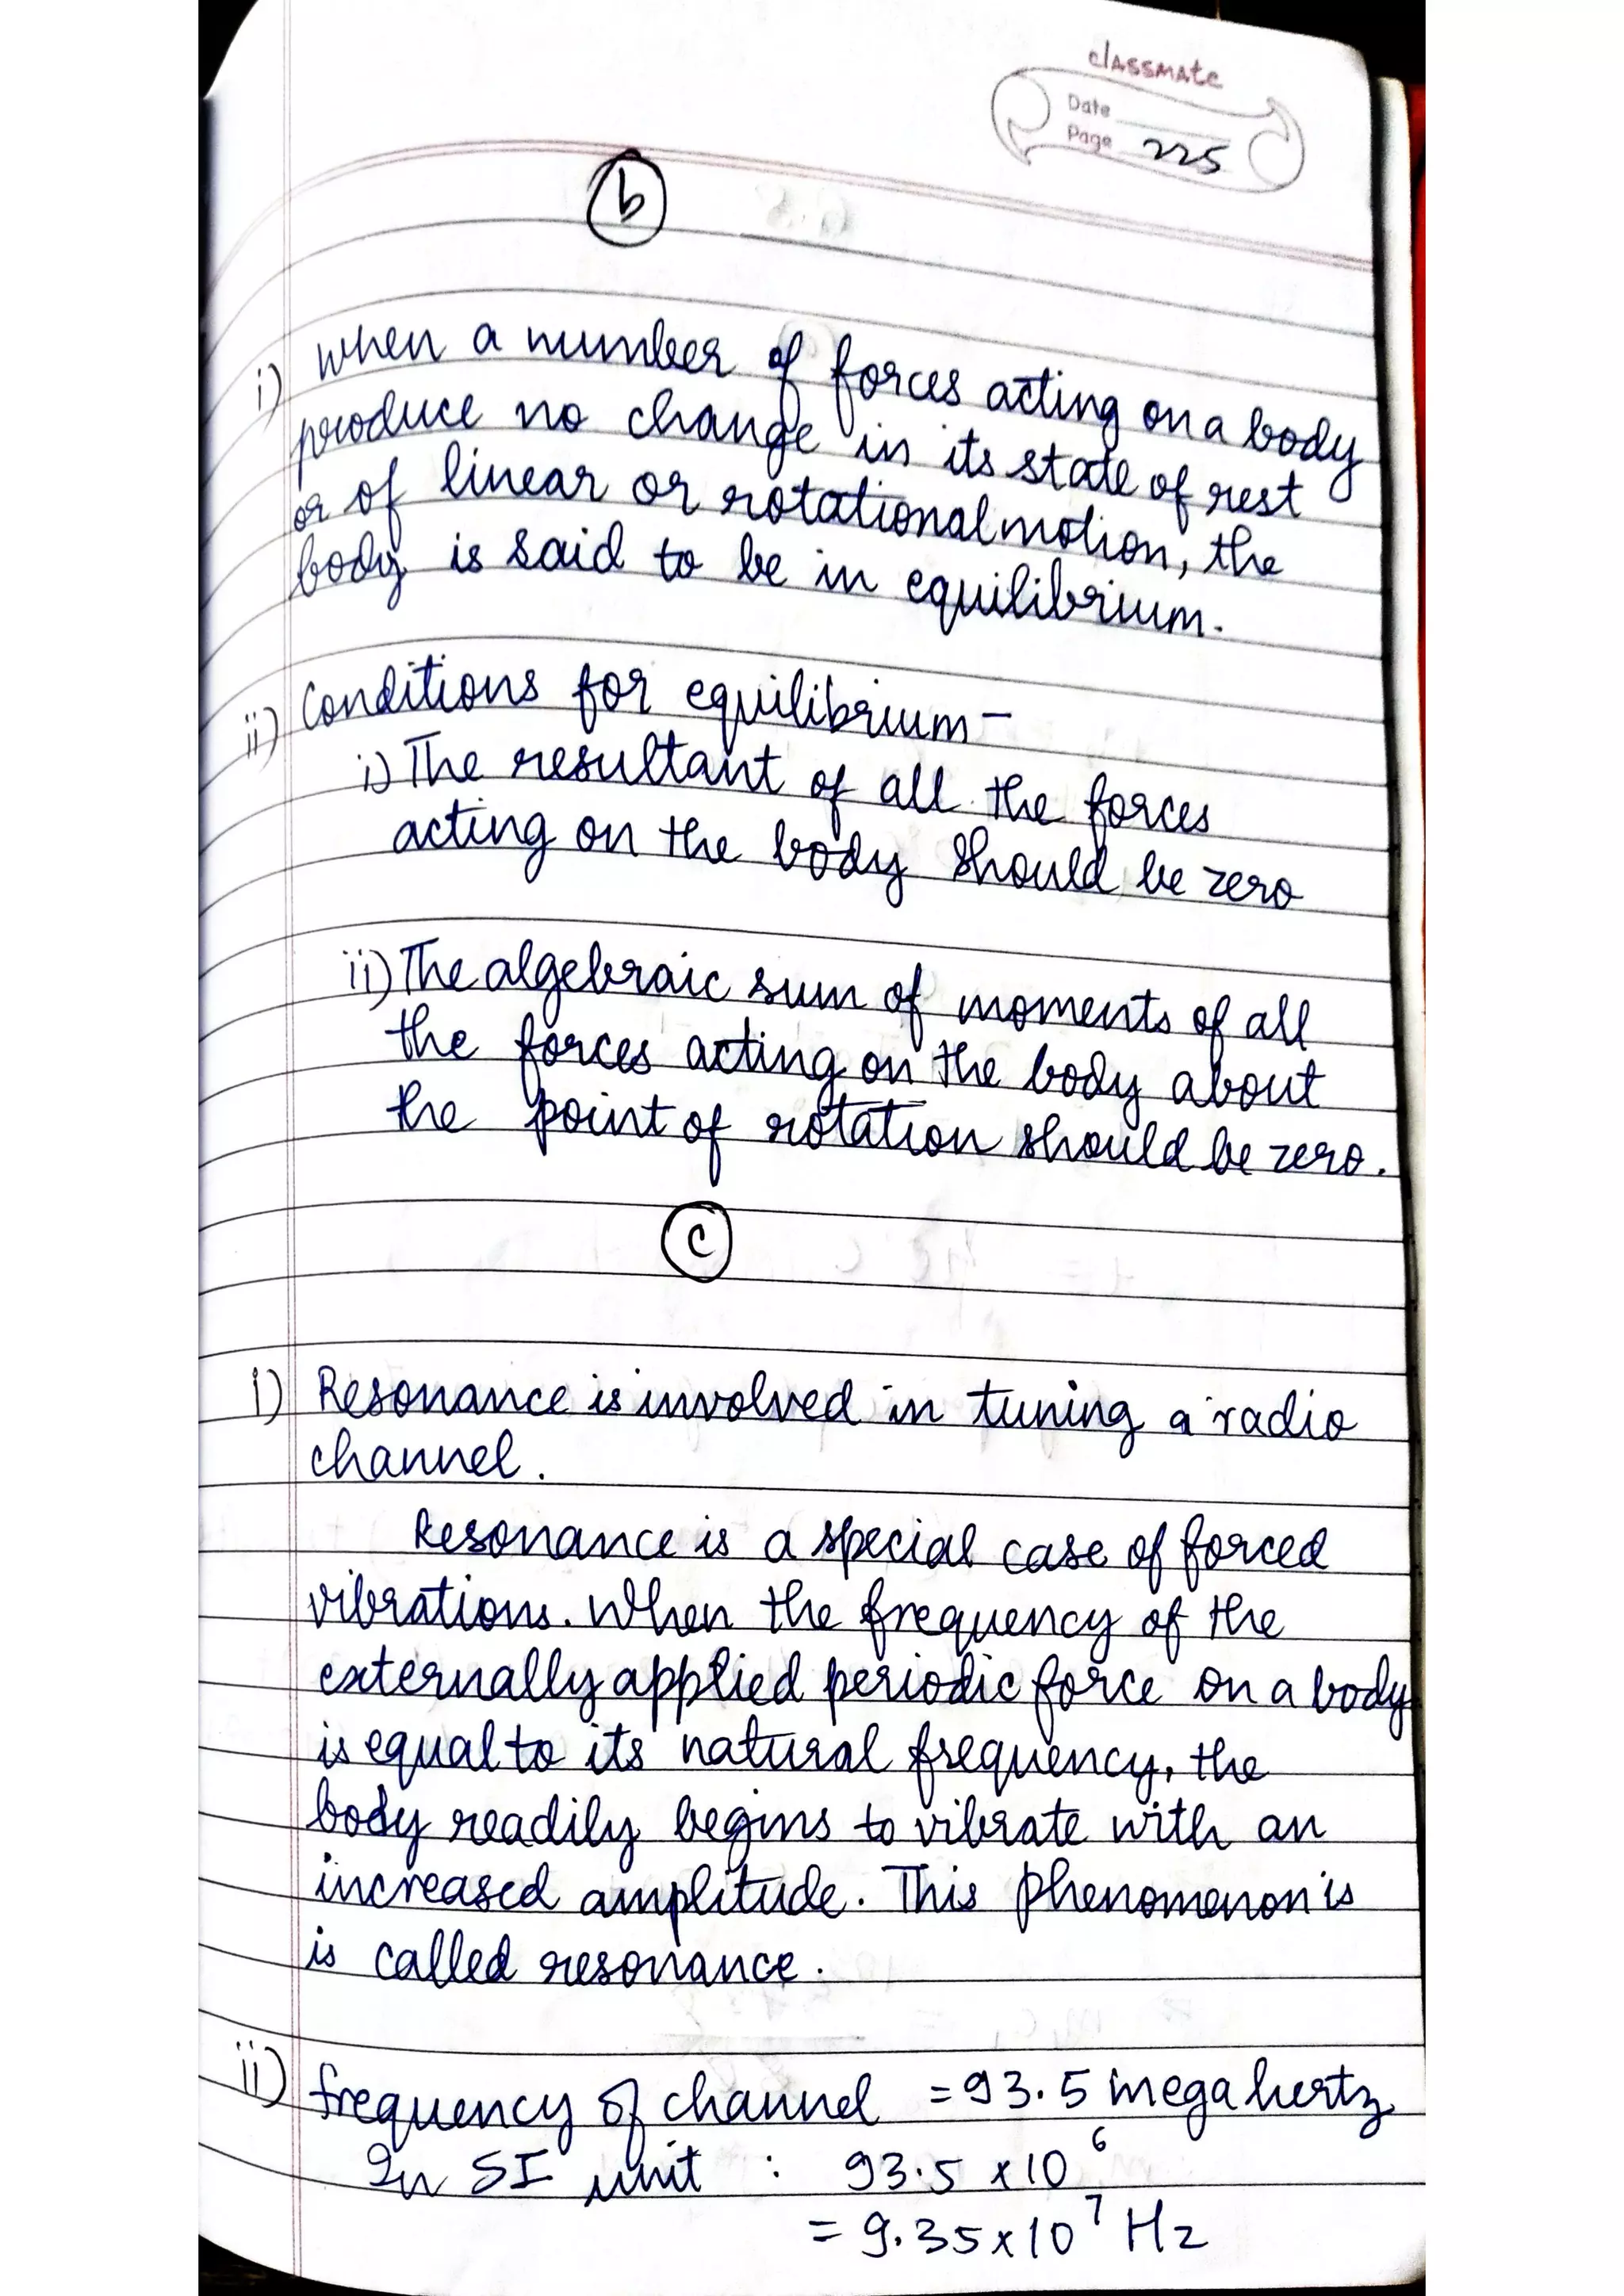 classmate
Date
Page 225
b
i) when a number of forces acting on a body
produce no change in its state of rest
or of linear or rotational motion, the
body is said to be in equilibrium.
ii) Conditions for equilibrium-
i) The resultant of all the forces
acting on the body should be zero
ii) The algebraic sum of moments of all
the forces acting on the body about
the point of rotation should be zero.
c
i) Resonance is involved in tuning a radio
channel.
Resonance is a special case of forced
vibrations. When the frequency of the
externally applied periodic force on a body
is equal to its natural frequency, the
body readily begins to vibrate with an
increased amplitude. This phenomenon is
is called resonance.
ii) frequency of channel = 93.5 megahertz
In SI unit : 93.5 x 10⁶
= 9.35 x 10⁷ Hz